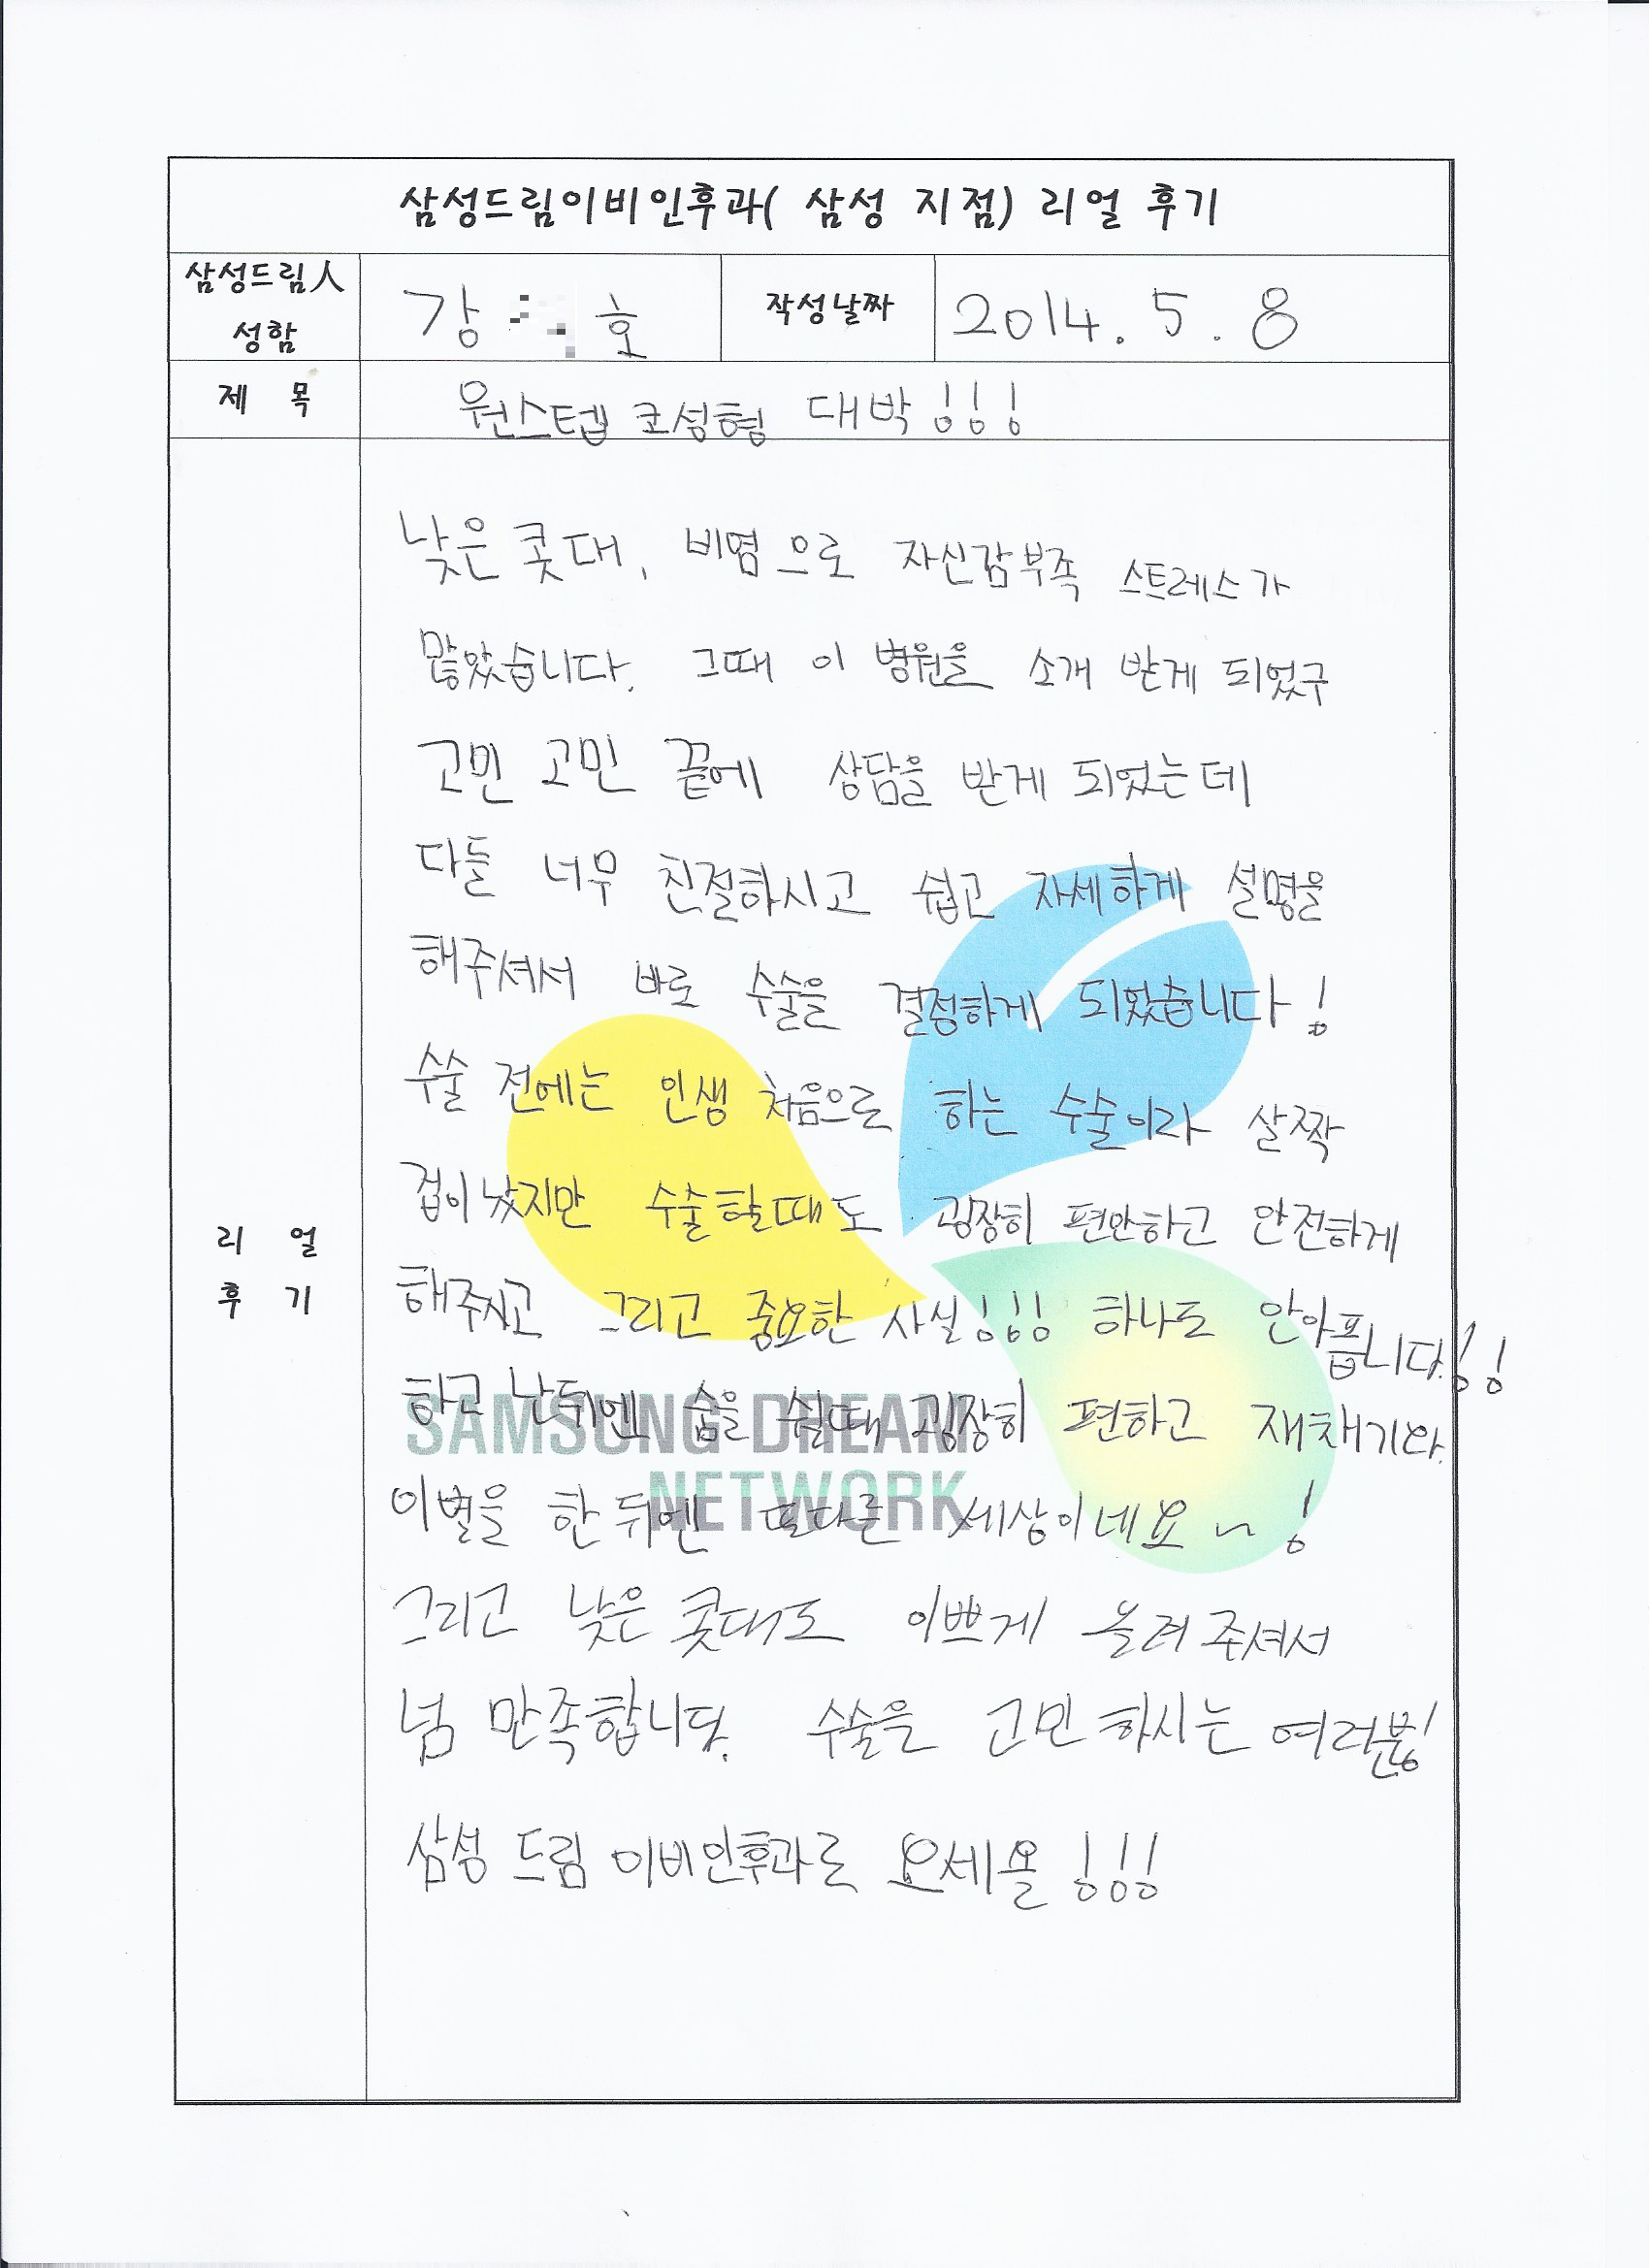 삼성드림이비인후과( 삼성 지점) 리얼 후기
삼성드림人 성함
강 호
작성날짜
2014. 5. 8
제 목
원스텝 코성형 대박!!!
리 얼 후 기
낮은 콧대, 비염으로 자신감부족 스트레스가
많았습니다. 그때 이 병원을 소개 받게 되었구
고민 고민 끝에 상담을 받게 되었는데
다들 너무 친절하시고 쉽고 자세하게 설명을
해주셔서 바로 수술을 결정하게 되었습니다!
수술 전에는 인생 처음으로 하는 수술이라 살짝
겁이 났지만 수술할때도 굉장히 편안하고 안전하게
해주시고 그리고 중요한 사실!!! 하나도 안아픕니다!!
하고 난뒤엔 숨을 쉴때 굉장히 편하고 재채기와
이별을 한 뒤엔 또다른 세상이네요~!
그리고 낮은 콧대도 이쁘게 올려주셔서
넘 만족합니다. 수술을 고민하시는 여러분!
삼성 드림 이비인후과로 오세욜!!!
SAMSUNG DREAM
NETWORK